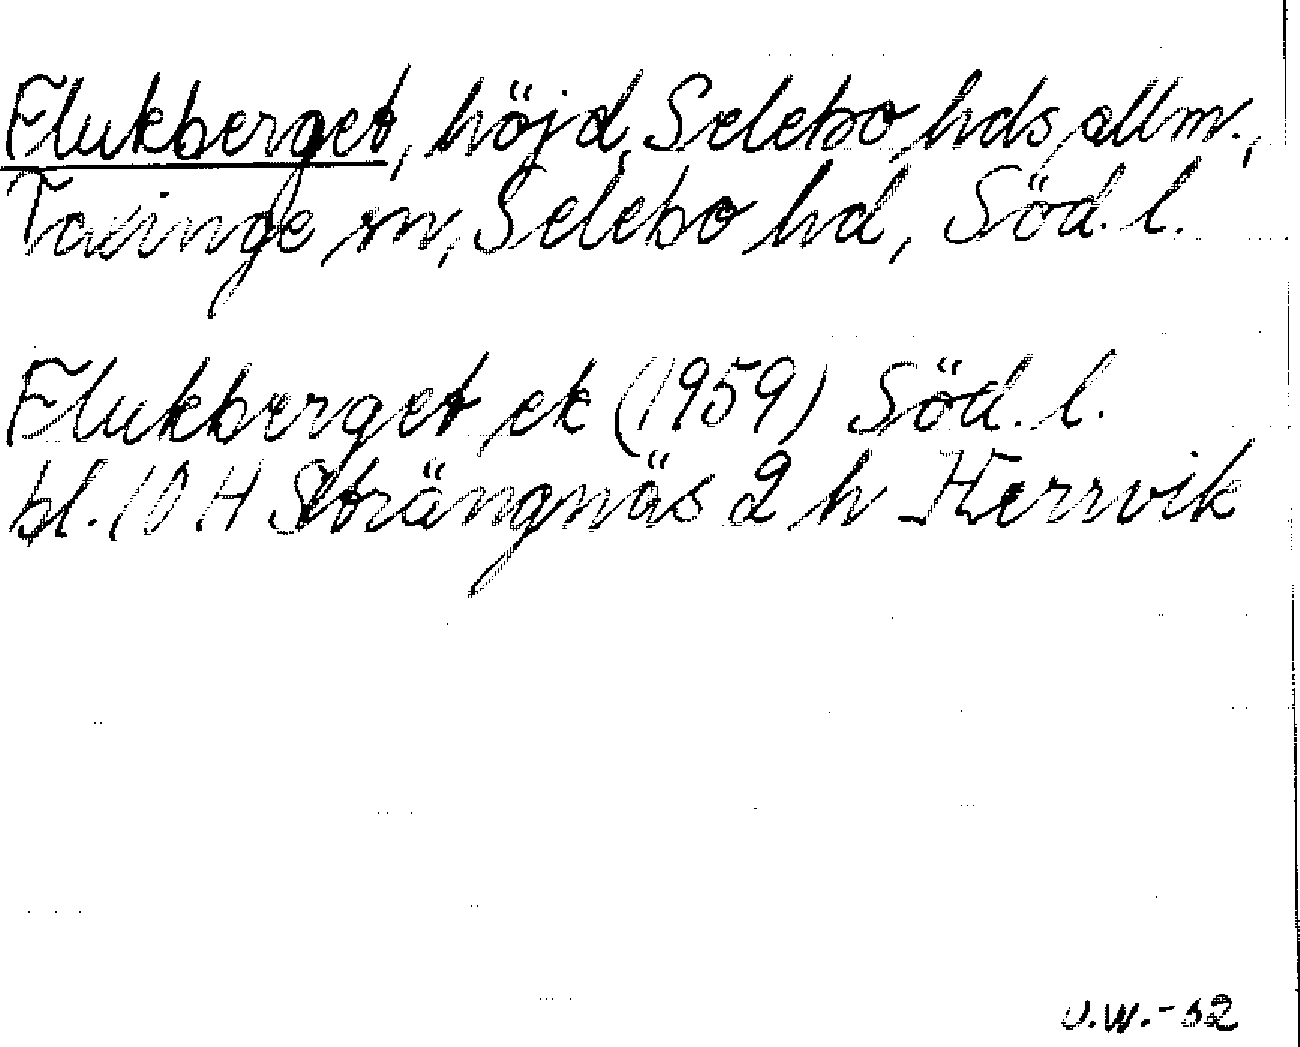 Flukberget, höjd, Selebo hds allm.,
Taxinge sn, Selebo hd, Söd. l.
Flukberget ek (1959) Söd. l.
bl. 10 H Strängnäs 2 h Herrvik
U.W.-62